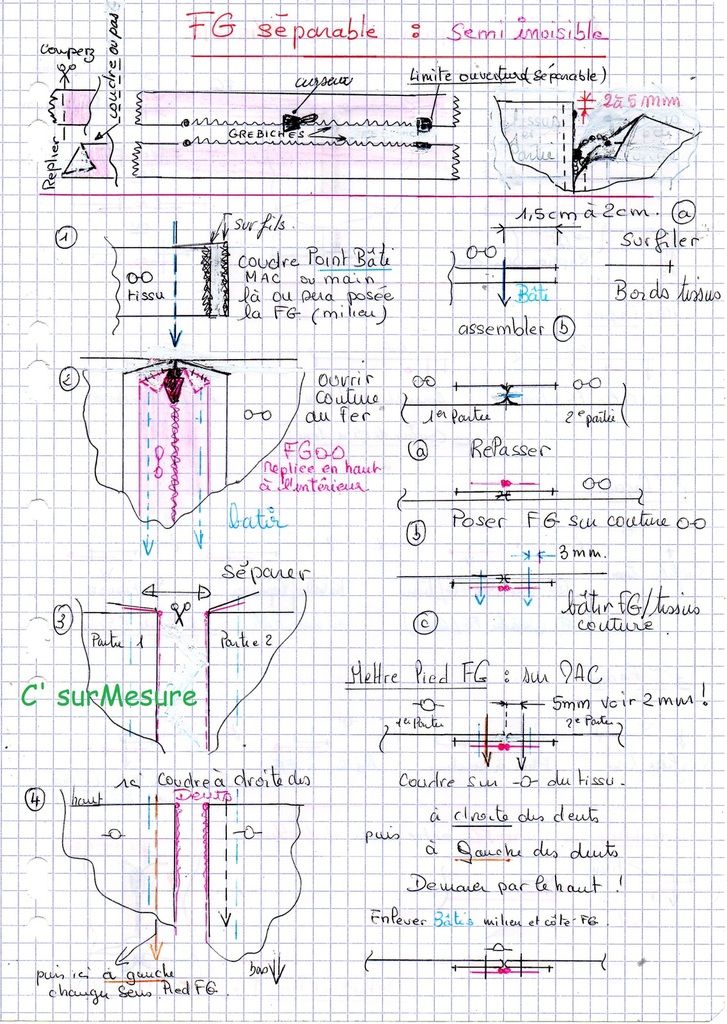 FG séparable : Semi invisible
Coupez
coudre ou pas
Replier
curseur
Limite ouverture (séparable)
GREBICHES
2 à 5 mm
tissu
Partie
1
surfils.
oo
tissu
coudre Point Bâti
MAC ou main
là ou sera posée
la FG (milieu)
1,5cm à 2cm. a
oo
Surfiler
Bords tissus
Bâti
assembler b
2
oo
ouvrir
couture
au Fer
FG oo
Repliée en haut
à l'intérieur
batir
oo
oo
1ère Partie
2e partie
a RePasser
oo
b Poser FG sur couture oo
3 mm.
c bâtir FG/tissus
couture
3
Séparer
Partie 1
Partie 2
C' surMesure
Mettre Pied FG : sur MAC
5mm voir 2 mm !
1ère Partie
2e Partie
Coudre sur -o- du tissu.
à droite des dents
puis
à gauche des dents
Demarer par le haut !
Enlever Bâtis milieu et côté FG.
4
ici coudre à droite des
Dents!
haut
-o-
-o-
puis ici à gauche
changer sens Pied FG.
bas